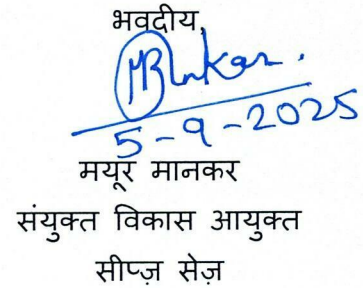 भवदीय,
5-9-2025
मयूर मानकर
संयुक्त विकास आयुक्त
सीप्ज़ सेज़